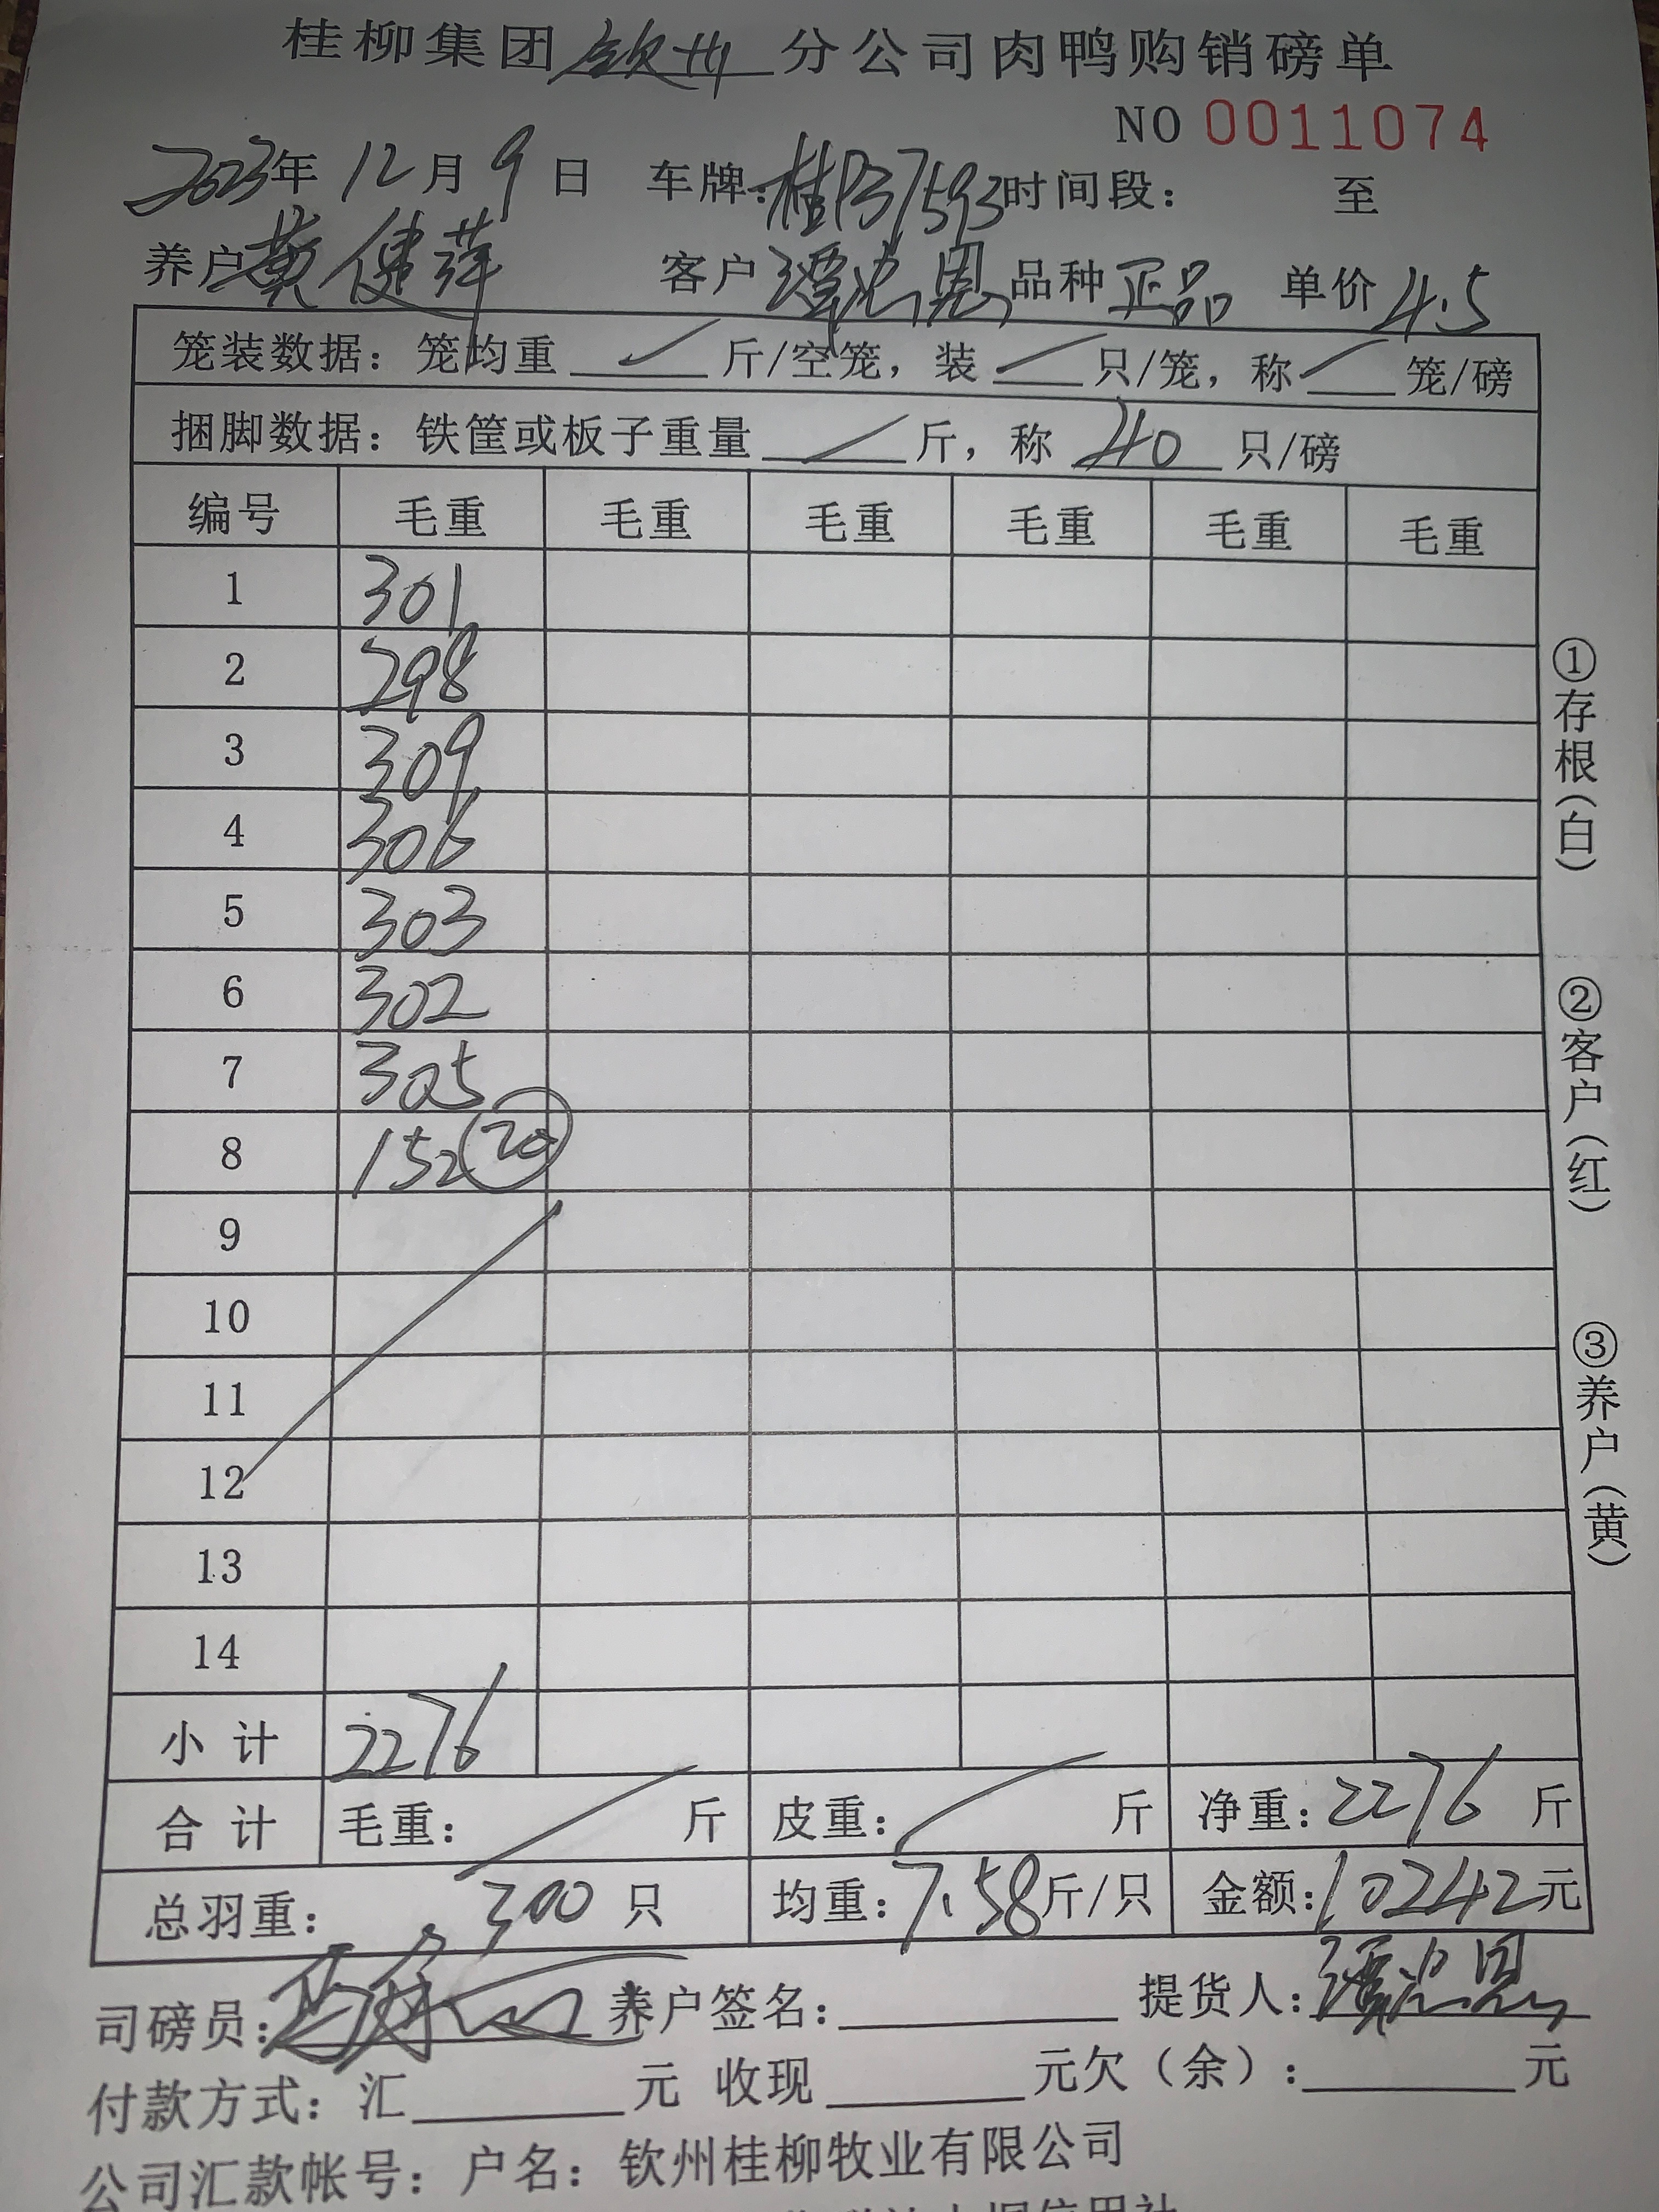 桂柳集团钦州分公司肉鸭购销磅单
NO 0011074
2023年 12月 9日 车牌:桂P37593 时间段: 至
养户 黄健萍 客户 谭忠恩 品种 正品 单价 4.5
笼装数据: 笼均重 斤/空笼, 装 只/笼, 称 笼/磅
捆脚数据: 铁筐或板子重量 斤, 称 40 只/磅
编号 毛重 毛重 毛重 毛重 毛重 毛重
1 301
2 298
3 309
4 306
5 303
6 302
7 305
8 152 20
9
10
11
12
13
14
小计 2276
合计 毛重: 斤 皮重: 斤 净重: 2276 斤
总羽重: 300 只 均重: 7.58 斤/只 金额: 10242 元
司磅员: 养户签名: 提货人: 谭忠恩
付款方式: 汇 元 收现 元欠(余): 元
公司汇款帐号: 户名: 钦州桂柳牧业有限公司
①存根(白)
②客户(红)
③养户(黄)